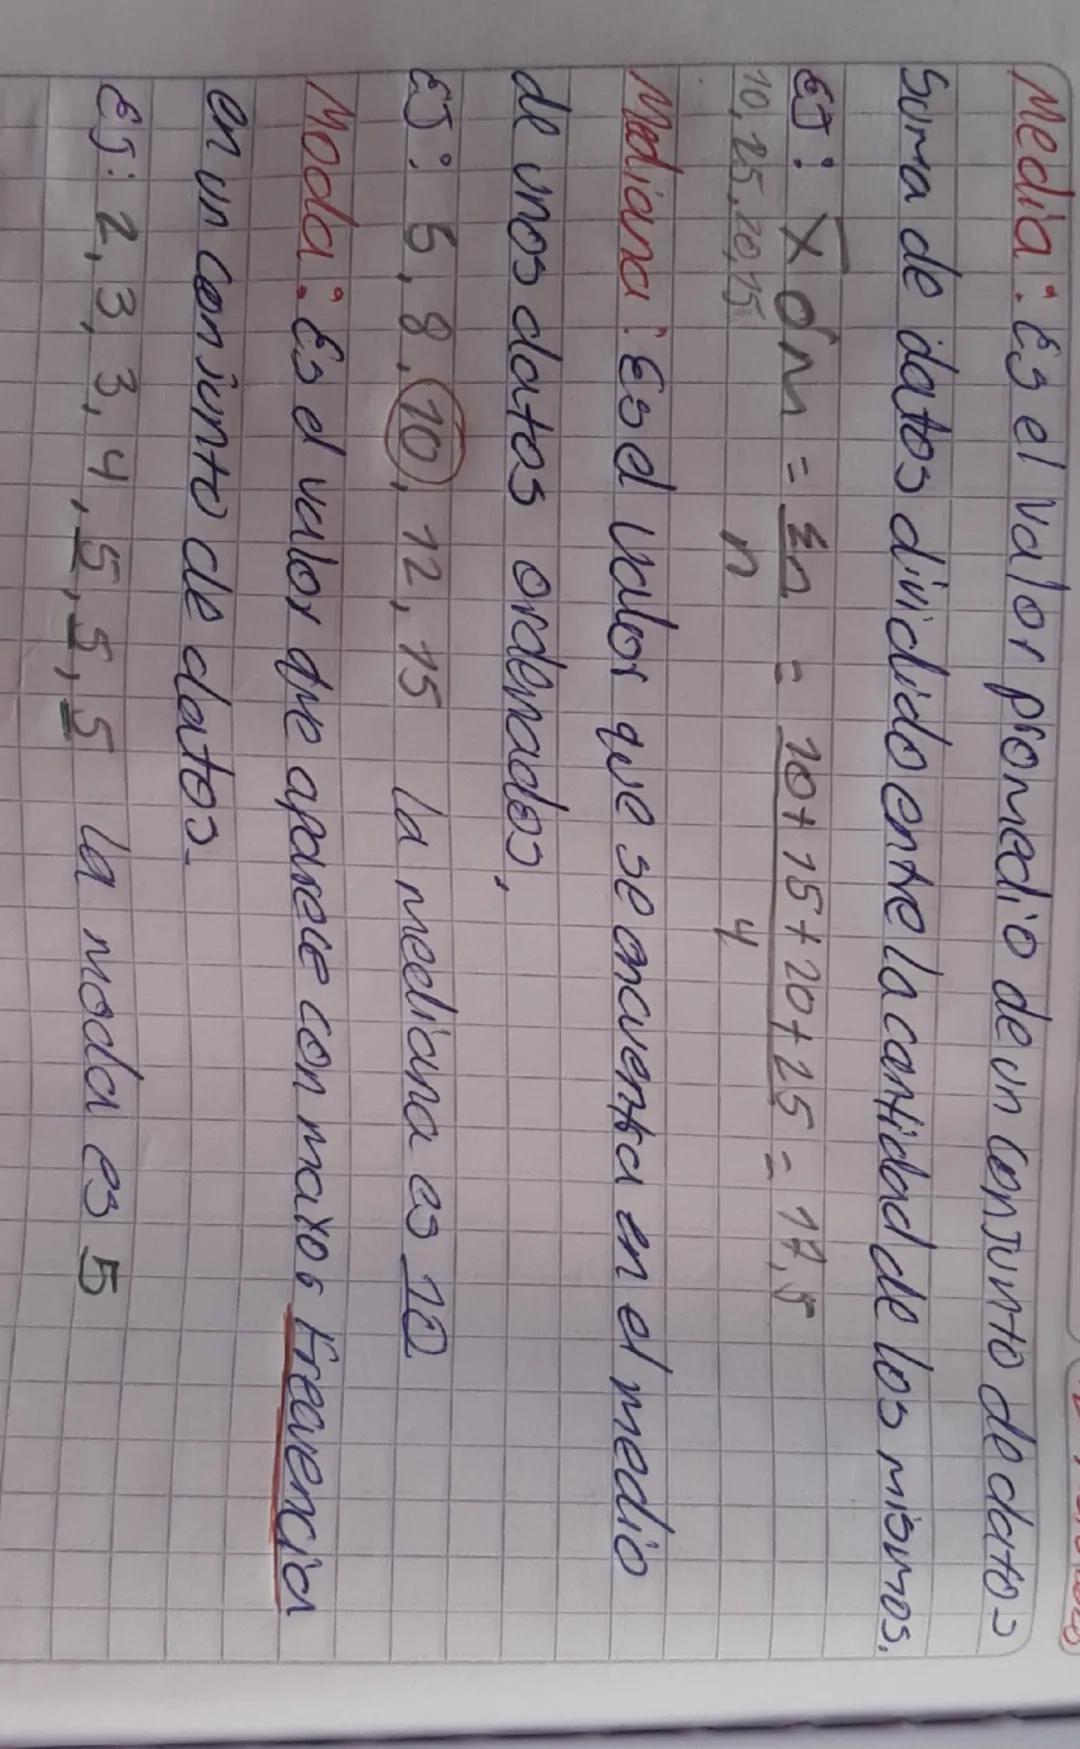 Media: Es el valor promedio de un conjunto de datos
Suma de datos dividido entre la cantidad de los mismos.
EJ: X̄ o m = Σn = 10+15+20+25 = 17,5
10,25,20,15 n 4
Mediana: Es el valor que se encuentra en el medio
de unos datos ordenados,
EJ: 5, 8, 10, 12, 15 la mediana es 10
Moda: Es el valor que aparece con mayor frecuencia
en un conjunto de datos.
EJ: 2, 3, 3, 4, 5, 5, 5 la moda es 5